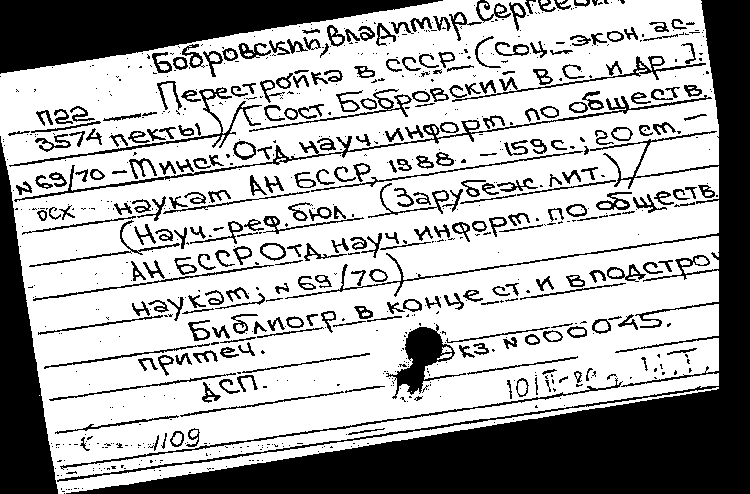 Бобровский, Владимир Сергеевич
Перестройка в СССР: (Соц.-экон. ас-
П22
3574 пекты) / [Сост. Бобровский В.С. и др.].
N 69/70 - Минск: Отд. науч. информ. по обществ.
наукам АН БССР, 1988. - 159 с.; 20 см. -
ОСХ
(Науч.-реф. бюл. (Зарубеж. лит.) /
АН БССР. Отд. науч. информ. по обществ.
наукам; N 69/70).
Библиогр. в конце ст. и в подстроч
примеч.
Экз. N 000045.
ДСП.
1109